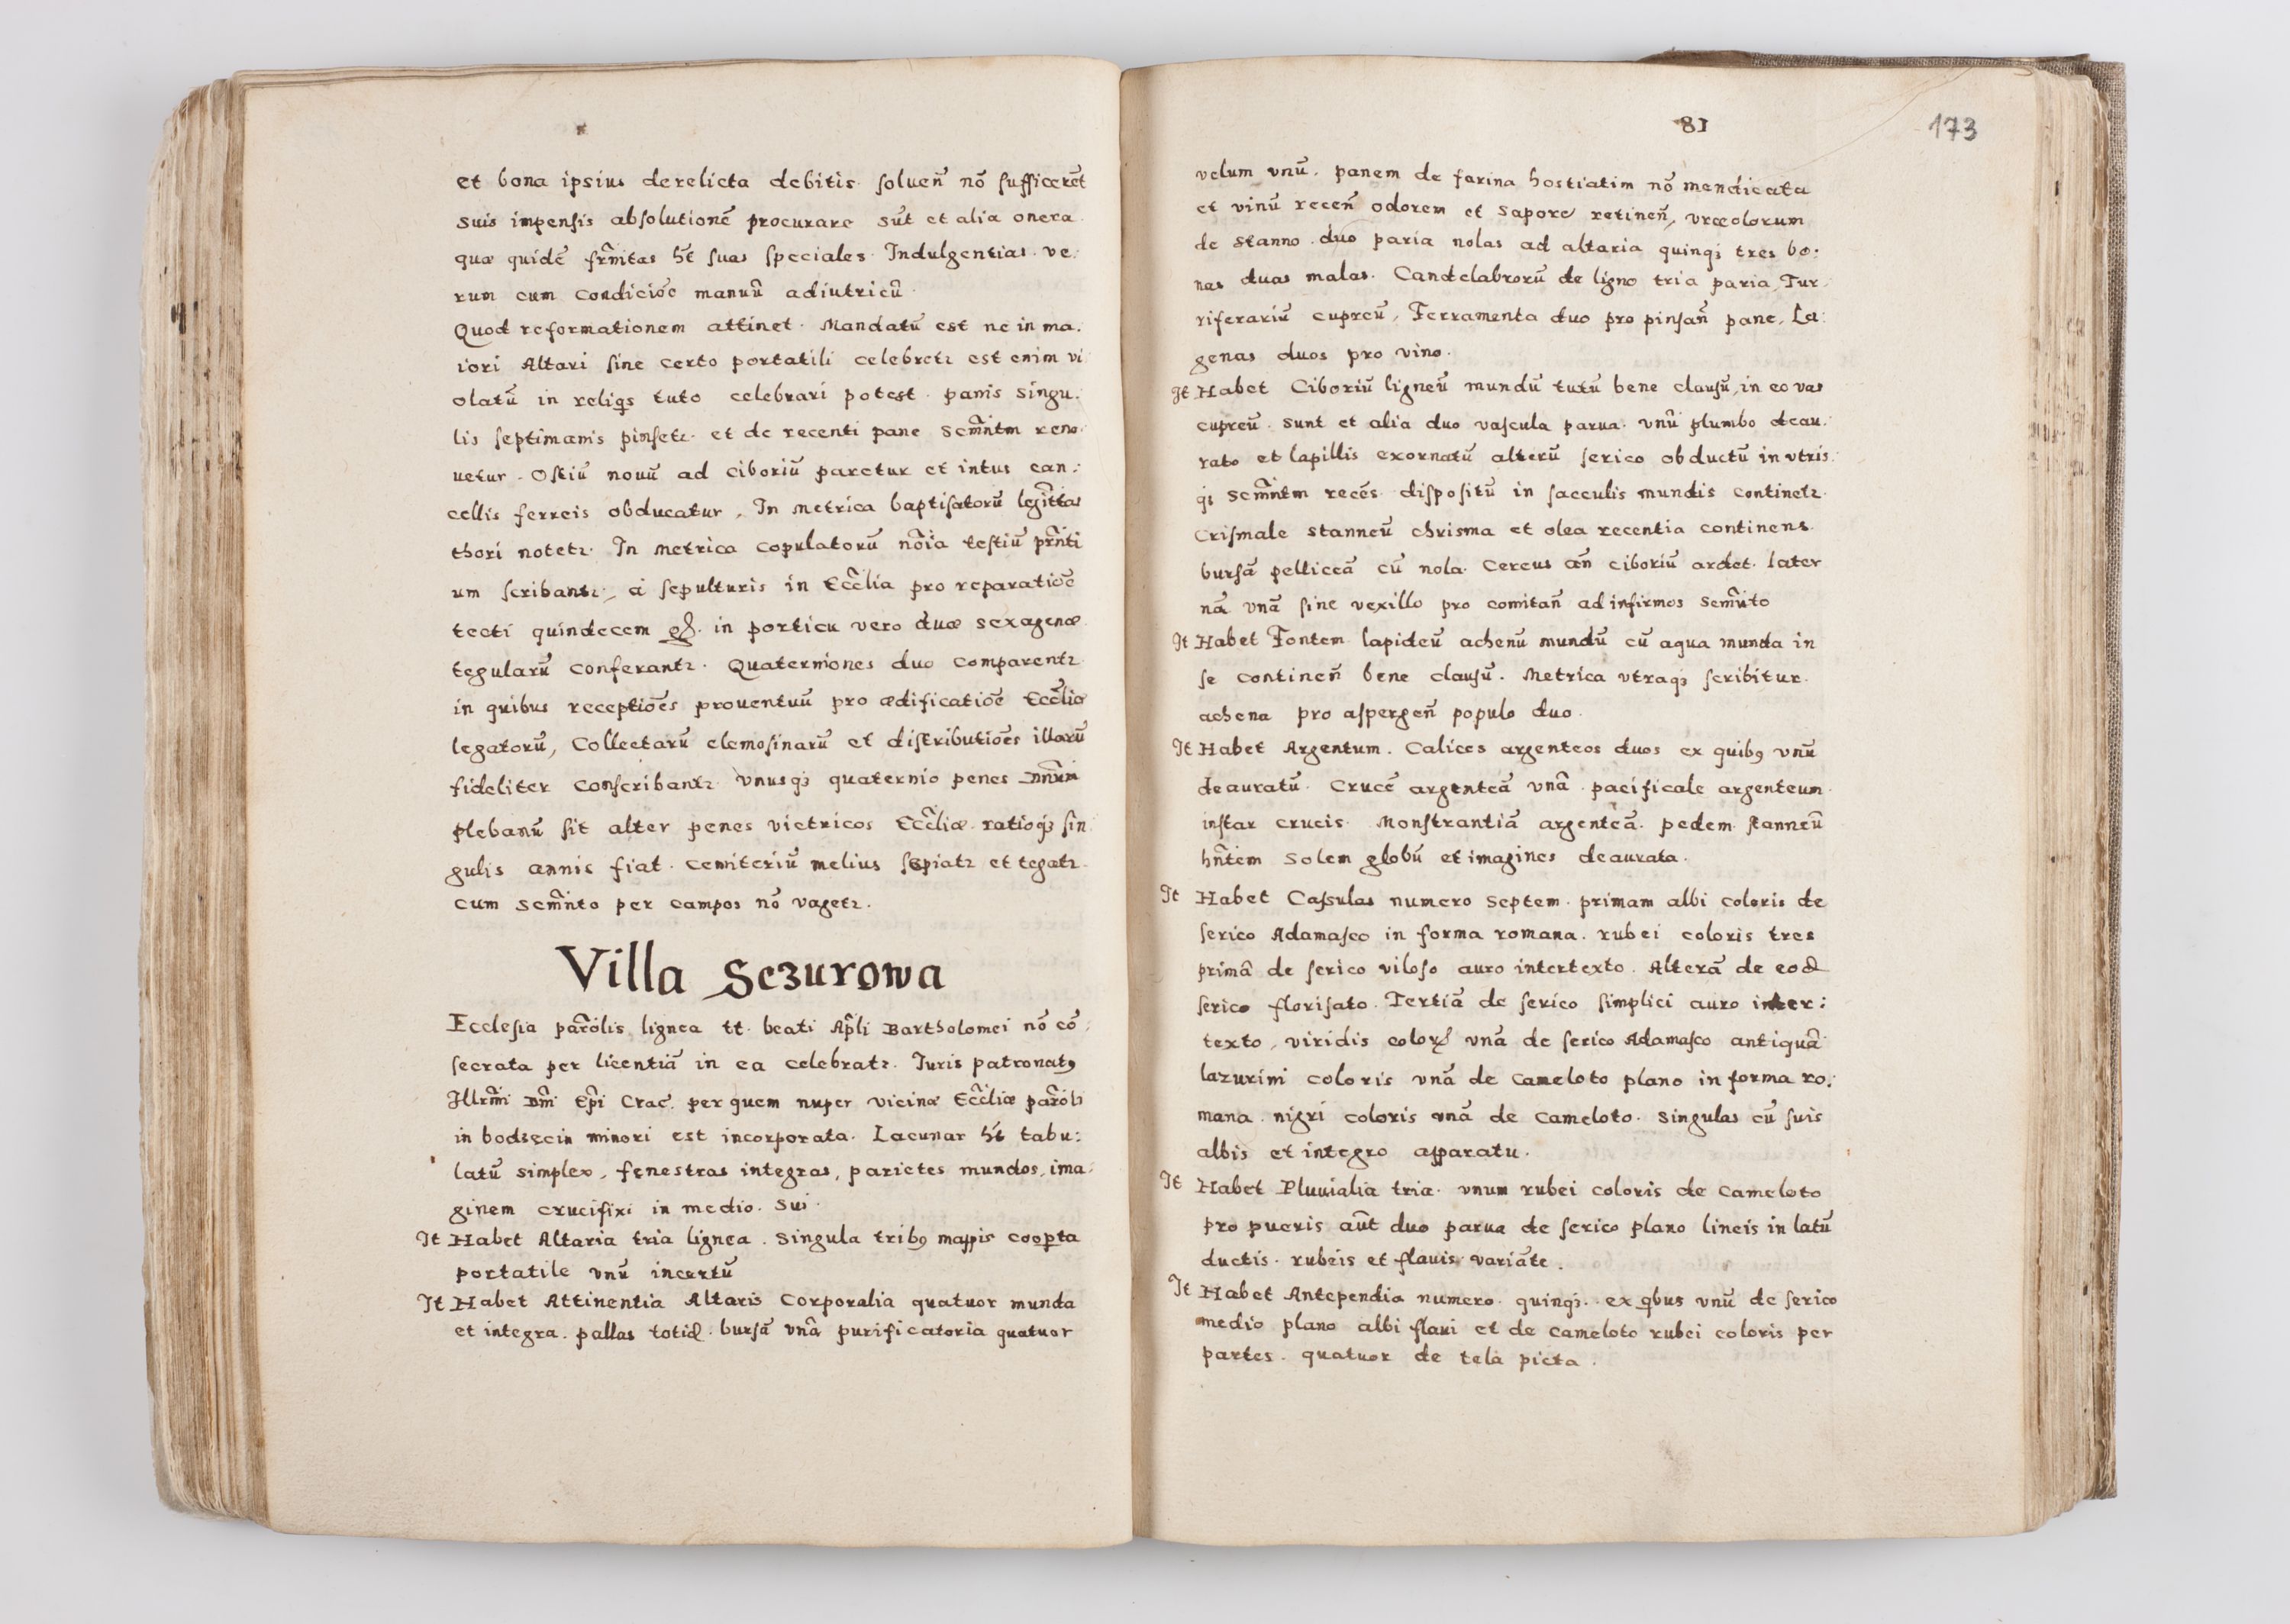 et bona ipsius derelicta debitis soluen̄ nō sufficerēt
suis impensis absolutionē procurare sūt et alia onera
quæ quidē frn̄itas hēt suas speciales Indulgentias. ve:
rum cum condiciōe manuū adiutricū
Quod reformationem attinet. Mandatū est ne in ma:
iori Altari sine certo portatili celebretꝛ est enim vi
olatū in reliqs tuto celebrari potest. panis singu:
lis septimanis pinsetꝛ. et de recenti pane Scm̄ntm reno:
uetur. Ostiū nouū ad ciboriū paretur et intus can:
cellis ferreis obducatur, In metrica baptisatorū legitt̄as
thori notetꝛ. In metrica copulatorū nōīa testiū prn̄ti
um scribantꝛ, à sepulturis in Eccl̄ia pro reparatiōe
tecti quindecem gſ. in porticu vero duæ sexagenæ
tegularū conferantꝛ. Quaterniones duo comparentꝛ
in quibus receptiōēs prouentuū pro ædificatiōe Eccl̄iæ
legatorū, Collectarū elemosinarū et distributiōēs illarū
fideliter conscribantꝛ vnusqȝ quaternio penes Dn̄um
plebanū sit alter penes victricos Eccl̄iæ. ratioqȝ sin
gulis annis fiat. cemiteriū melius sepiatꝛ et tegatꝛ.
cum Scm̄nto per campos nō vagetꝛ.
Villa Sczurowa
Ecclesia parōlis lignea tt. beati Ap̄li Bartholomei nō cō:
secrata per licentiā in ea celebratꝛ. Iuris patronatꝰ
Illrm̄i Dm̄i Ep̄i Crac̄. per quem nuper vicinæ Eccl̄iæ parōli
in bodzecin minori est incorporata. Lacunar hēt tabu:
latū simplex, fenestras integras, parietes mundos, ima:
ginem crucifixi in medio. sui.
It Habet Altaria tria lignea. singula tribꝰ mappis coopta
portatile vnū incertū
It Habet Attinentia Altaris Corporalia quatuor munda
et integra. pallas totid. bursā vnā purificatoria quatuor
81
173
velum vnū. panem de farina hostiatim nō mendicata
et vinū recen̄ odorem et sapore retinen̄, vrceolorum
de stanno. duo paria nolas ad altaria quinqȝ tres bo:
nas duas malas. Candelabrorū de ligno tria paria, Tur
riferariū cupreū, Ferramenta duo pro pinsan̄ pane, La:
genas duos pro vino.
It Habet Ciboriū ligneū mundū tutū bene clausū, in eo vas
cupreū. sunt et alia duo vascula parua. vnū plumbo deau:
rato et lapillis exornatū alterū serico obductū in vtris:
qȝ Scm̄ntm recēs dispositū in sacculis mundis continetꝛ.
Crismale stanneū chrisma et olea recentia continens.
bursā pelliceā cū nola. Cereus an̄ ciboriū ardet. later
nā vnā sine vexillo pro comitan̄ ad infirmos Scm̄nto
It Habet Fontem lapideū achenū mundū cū aqua munda in
se continen̄ bene clausū. Metrica vtraqȝ scribitur.
achena pro aspergen̄ populo duo.
It Habet Argentum. Calices argenteos duos ex quibꝰ vnū
deauratū. Crucē argenteā vnā. pacificale argenteum
instar crucis. Monstrantiā argenteā. pedem. stanneū
hn̄tem Solem globū et imagines deaurata.
It Habet Casulas numero septem. primam albi coloris de
serico Adamasco in forma romana. rubei coloris tres
primā de serico viloso auro intertexto. Alterā de eod
serico florisato. Tertiā de serico simplici auro inter:
texto, viridis color vnā de serico Adamasco antiquā
lazurini coloris vnā de cameloto plano in forma ro:
mana. nigri coloris vnā de cameloto. singulas cū suis
albis et integro apparatu.
It Habet Pluuialia tria. vnum rubei coloris de cameloto
pro pueris aūt duo parua de serico plano lineis in latū
ductis. rubeis et flauis variāte.
It Habet Antependia numero. quinqȝ. ex qbus vnū de serico
medio plano albi flaui et de cameloto rubei coloris per
partes. quatuor de tela picta.